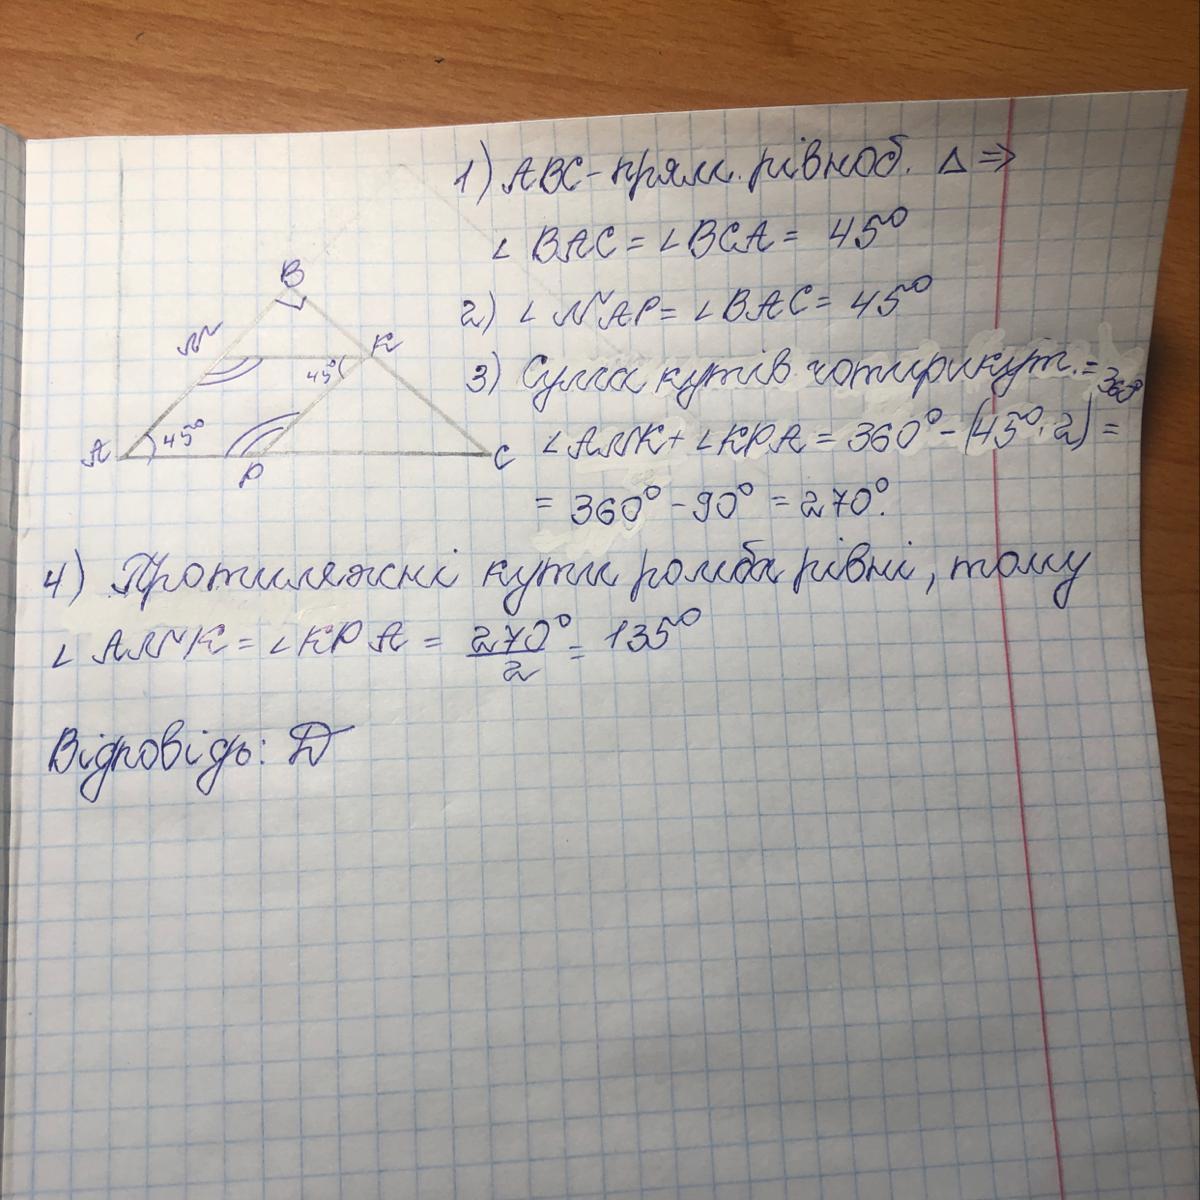 1) ABC - прям. рівноб. Δ ⇒
∠ BAC = ∠ BCA = 45°
2) ∠ NAP = ∠ BAC = 45°
3) Сума кутів чотирикут. = 360°
∠ ANK + ∠ KPA = 360° - (45° · 2) =
= 360° - 90° = 270°.
B
N
K
45°
A
45°
P
C
4) Протилежні кути ромба рівні, тому
∠ ANK = ∠ KPA = 270°/2 = 135°
Відповідь: Д